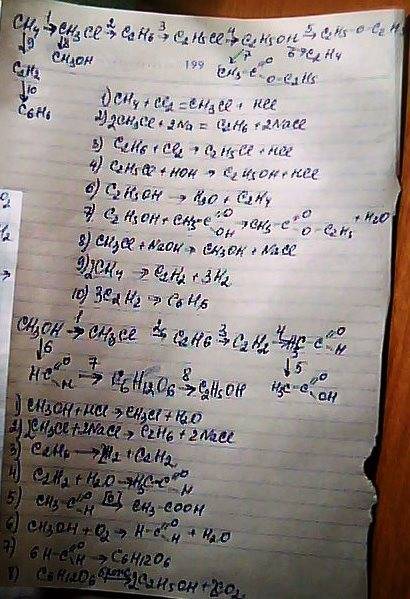 CH₄ →1 CH₃Cl →2 C₂H₆ →3 C₂H₅Cl →4 C₂H₅OH →5 C₂H₅-O-C₂H₅
↓9 ↓8 7 6↘ C₂H₄
C₂H₂ CH₃OH 199 CH₃-C=O O-C₂H₅
↓10
C₆H₆
1) CH₄ + Cl₂ = CH₃Cl + HCl
2) 2CH₃Cl + 2Na = C₂H₆ + 2NaCl
3) C₂H₆ + Cl₂ → C₂H₅Cl + HCl
4) C₂H₅Cl + HOH → C₂H₅OH + HCl
6) C₂H₅OH → H₂O + C₂H₄
7) C₂H₅OH + CH₃-C=O OH → CH₃-C=O O-C₂H₅ + H₂O
8) CH₃Cl + NaOH → CH₃OH + NaCl
9) 2CH₄ → C₂H₂ + 3H₂
10) 3C₂H₂ → C₆H₆
CH₃OH →1 CH₃Cl →2 C₂H₆ →3 C₂H₂ →4 H₃C-C=O H
↓6 ↓5
HC=O H →7 C₆H₁₂O₆ →8 C₂H₅OH H₃C-C=O OH
1) CH₃OH + HCl → CH₃Cl + H₂O
2) 2CH₃Cl + 2Na → C₂H₆ + 2NaCl
3) C₂H₆ → H₂ + C₂H₂
4) C₂H₂ + H₂O → H₃C-C=O H
5) CH₃-C=O H [O] → CH₃-COOH
6) CH₃OH + O₂ → H-C=O H + H₂O
7) 6H-C=O H → C₆H₁₂O₆
8) C₆H₁₂O₆ → 2C₂H₅OH + 2CO₂